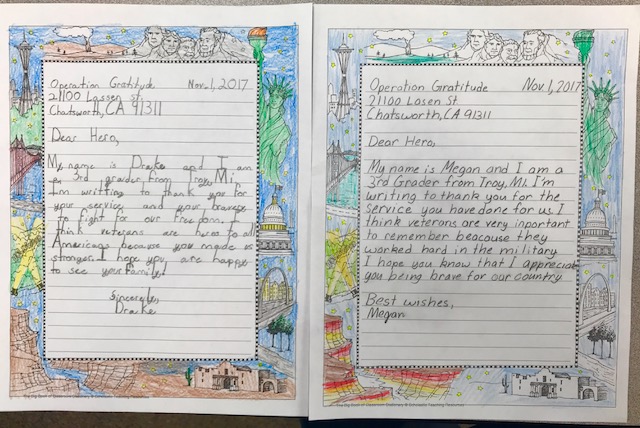 Operation Gratitude Nov. 1, 2017
21100 Lassen St
Chatsworth, CA 91311
Dear Hero,
My name is Drake and I am
a 3rd grader from Troy, Mi.
I'm writting to thank you for
your service and your bravery
to fight for our freedom. I
think veterans are heros to all
Americans because you made us
stronger. I hope you are happy
to see your family!
Sincerely,
Drake
Operation Gratitude Nov 1, 2017
21100 Lasen St
Chatsworth, CA 91311
Dear Hero,
My name is Megan and I am a
3rd Grader from Troy, MI. I'm
writing to thank you for the
service you have done for us. I
think veterans are very inportant
to remember beacouse they
worked hard in the military
I hope you know that I appreciate
you being brave for our country
Best wishes,
Megan